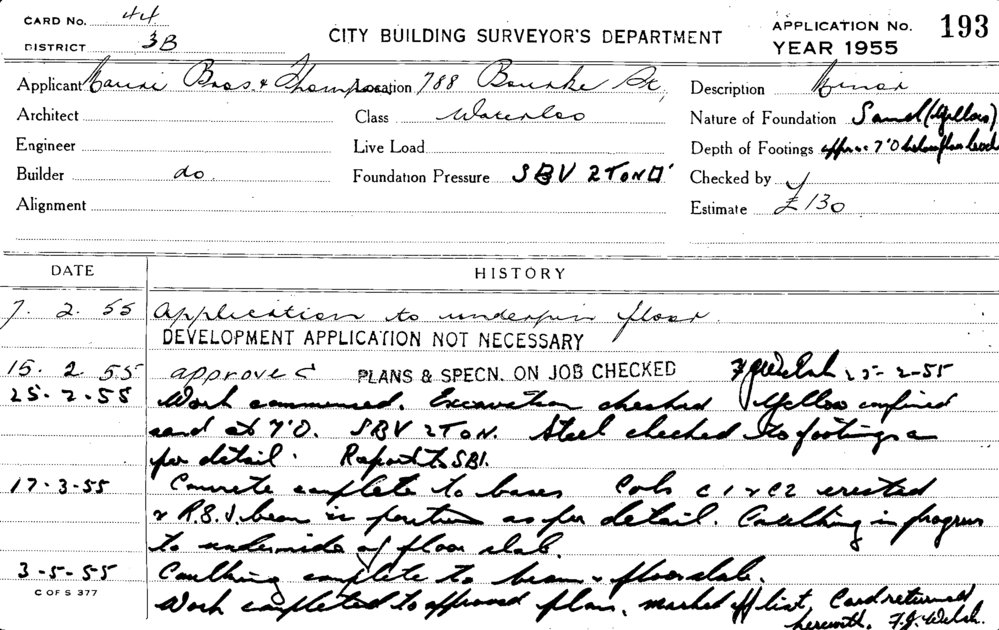 CARD No. 44
DISTRICT 3B
CITY BUILDING SURVEYOR'S DEPARTMENT
APPLICATION No. 193
YEAR 1955
Applicant Bros. & Thompson Location 788 Bourke St,
Description Minor
Architect
Class Waterloo
Nature of Foundation Sand (Yellow)
Engineer
Live Load
Depth of Footings approx 7'0 below floor level
Builder do.
Foundation Pressure SBV 2 TON □'
Checked by
Alignment
Estimate £130
DATE HISTORY
7. 2. 55 Application to underpin floor.
DEVELOPMENT APPLICATION NOT NECESSARY
15. 2. 55 approved PLANS & SPECN. ON JOB CHECKED F J Welsh 25-2-55
25-2-55 Work commenced. Excavation checked Yellow confined
sand at 7'0. SBV 2 TON. Steel checked to footings as
per detail. Report to SBI.
17-3-55 Concrete complete to bases Cols C1 & C2 erected
& R.S.J. beam in position as per detail. Caulking in progress
to underside of floor slab.
3-5-55 Caulking complete to beam & floor slab.
C OF S 377
Work completed to approved plan. marked off list, Card returned
herewith. F.J. Welsh.